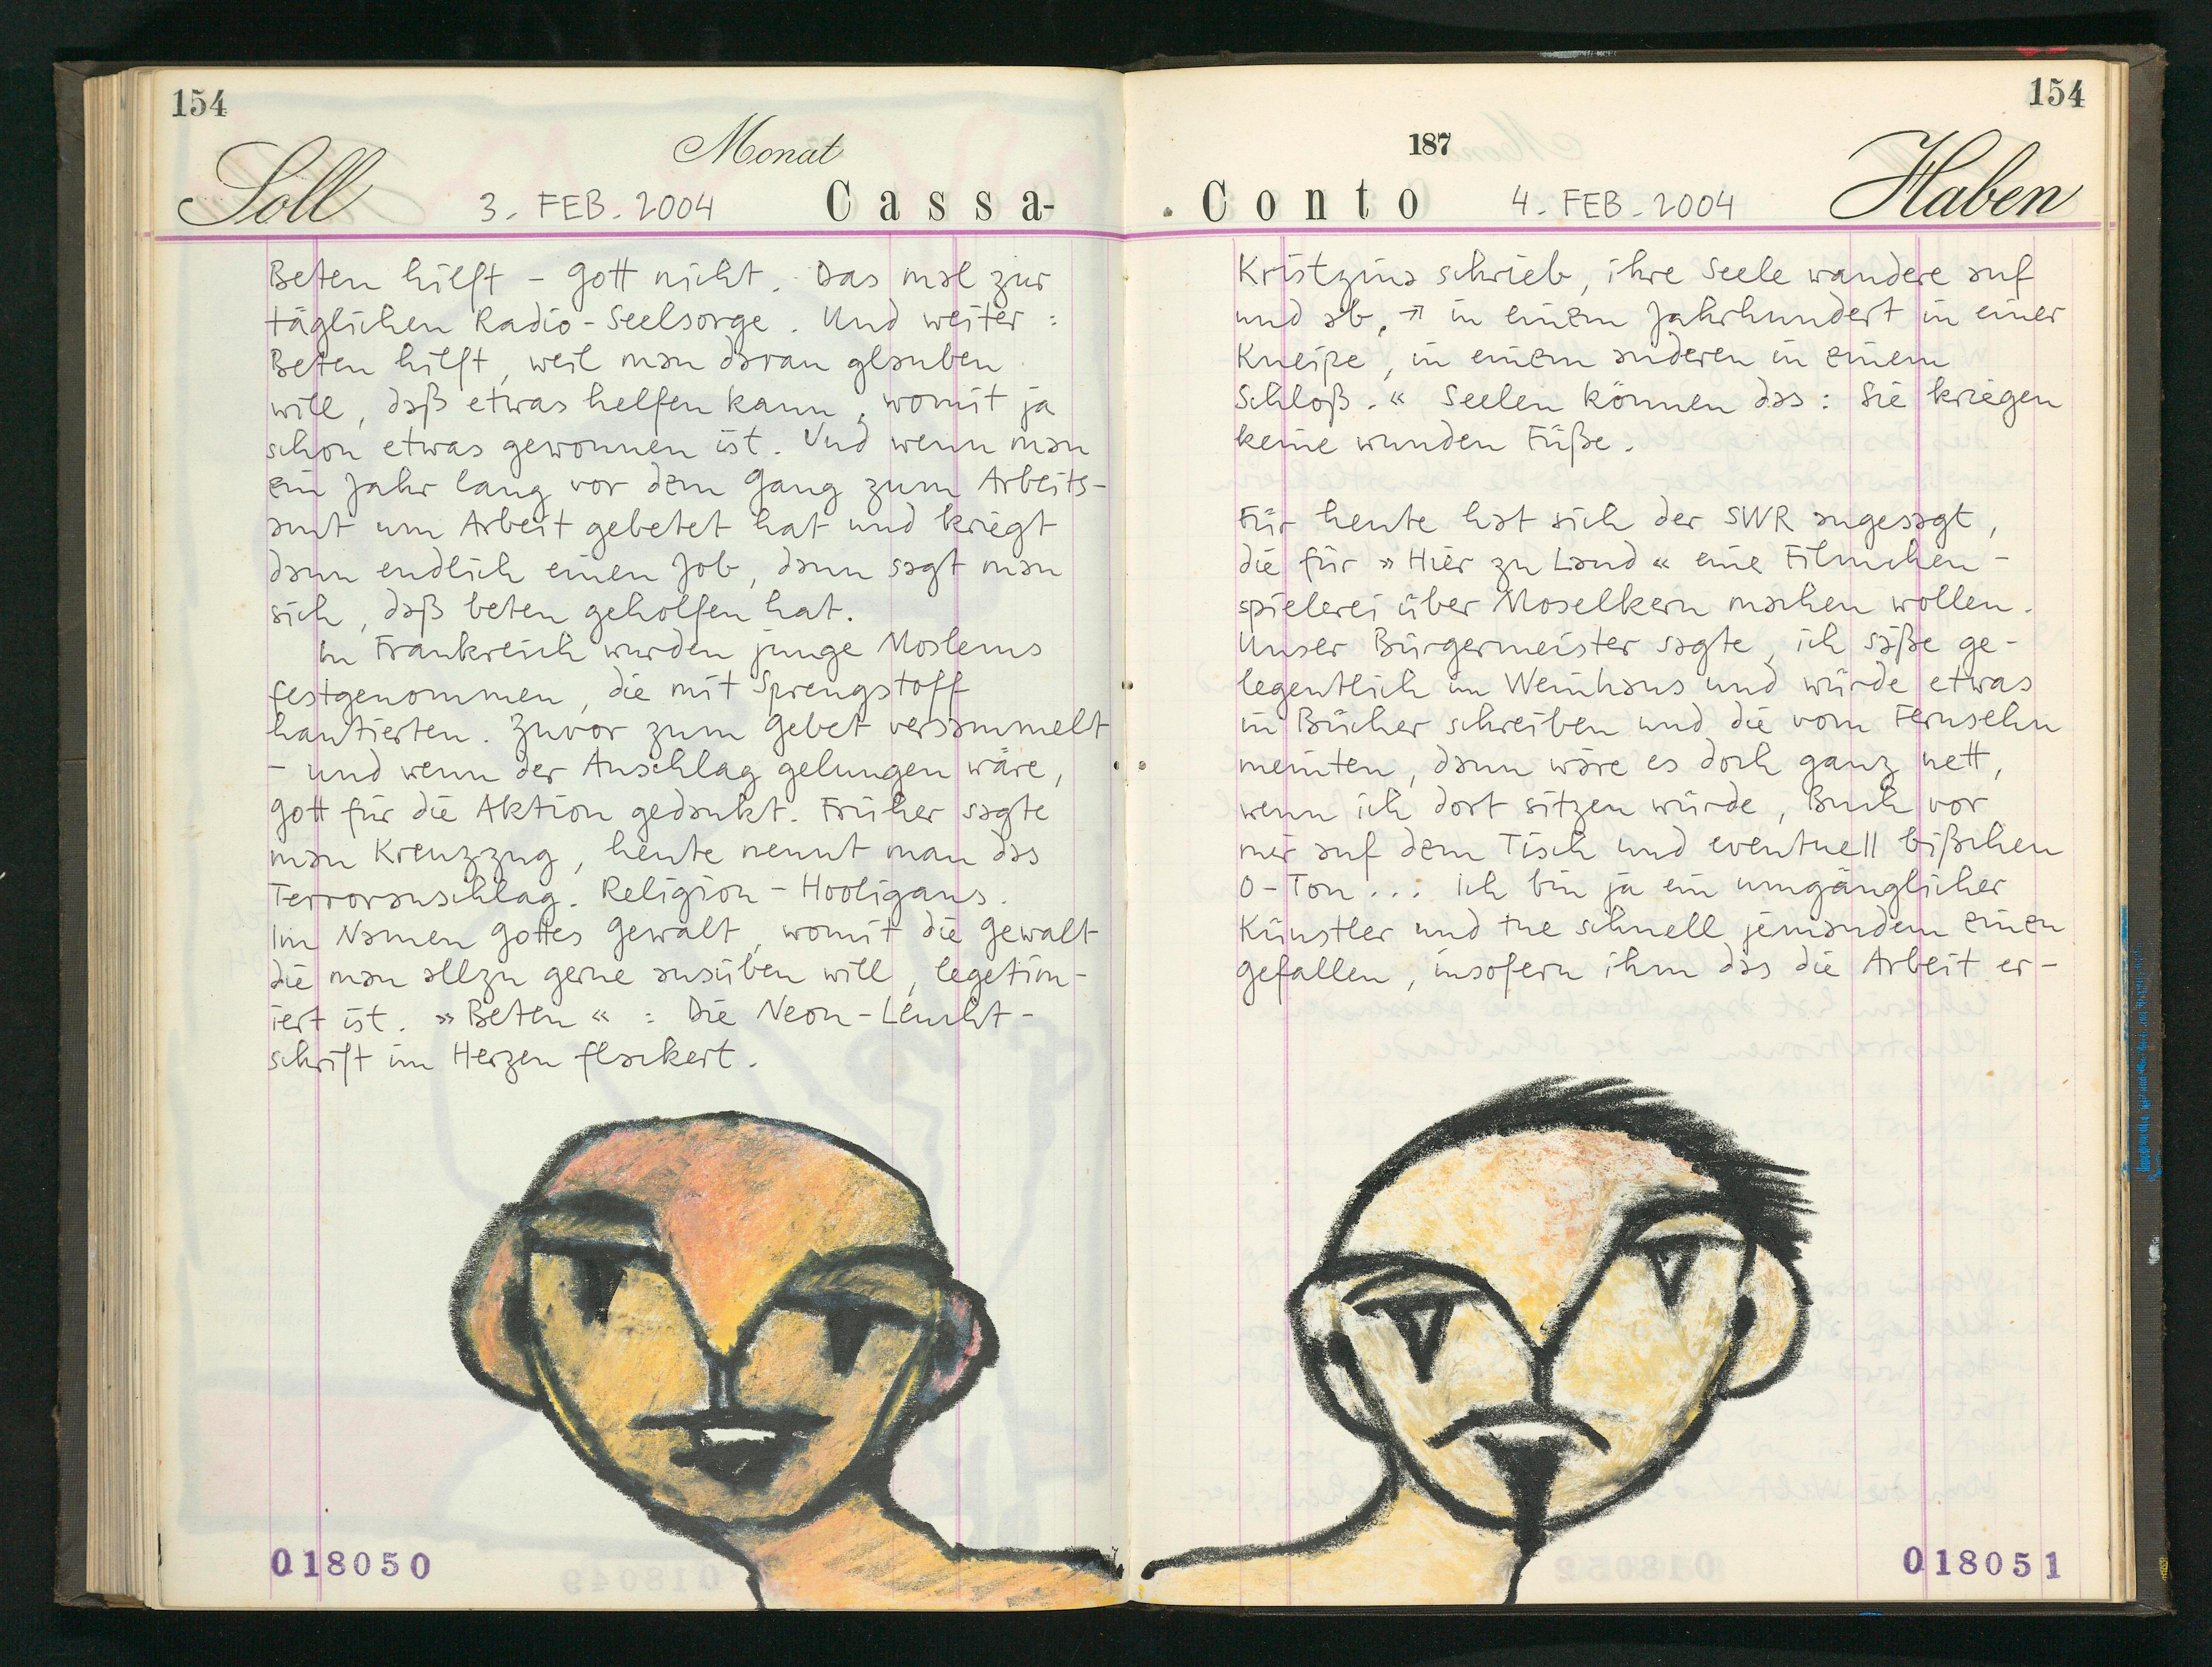 154
Monat
Soll 3. FEB. 2004 Cassa-
Beten hilft – Gott nicht. Das mal zur
täglichen Radio-Seelsorge. Und weiter:
Beten hilft, weil man daran glauben
will, daß etwas helfen kann, womit ja
schon etwas gewonnen ist. Und wenn man
ein Jahr lang vor dem Gang zum Arbeits-
amt um Arbeit gebetet hat und kriegt
dann endlich einen Job, dann sagt man
sich, daß beten geholfen hat.
In Frankreich wurden junge Moslems
festgenommen, die mit Sprengstoff
hantierten. Zuvor zum Gebet versammelt
– und wenn der Anschlag gelungen wäre,
Gott für die Aktion gedankt. Früher sagte
man Kreuzzug, heute nennt man das
Terroranschlag. Religion-Hooligans.
Im Namen Gottes Gewalt, womit die Gewalt
die man allzu gerne ausüben will, legetim-
iert ist. »Beten« : Die Neon-Leucht-
schrift im Herzen flackert.
018050
154
187
Conto 4. FEB. 2004 Haben
Kristzina schrieb, ihre Seele wandere auf
und ab, » in einem Jahrhundert in einer
Kneipe, in einem anderen in einem
Schloß.« Seelen können das: Sie kriegen
keine wunden Füße.
Für heute hat sich der SWR angesagt,
die für »Hier zu Land« eine Filmchen-
spielerei über Moselkern machen wollen.
Unser Bürgermeister sagte, ich säße ge-
legentlich im Weinhaus und würde etwas
in Bücher schreiben und die vom Fernsehn
meinten, dann wäre es doch ganz nett,
wenn ich dort sitzen würde, Buch vor
mir auf dem Tisch und eventuell bißchen
O-Ton... Ich bin ja ein umgänglicher
Künstler und tue schnell jemandem einen
Gefallen, insofern ihm das die Arbeit er-
018051